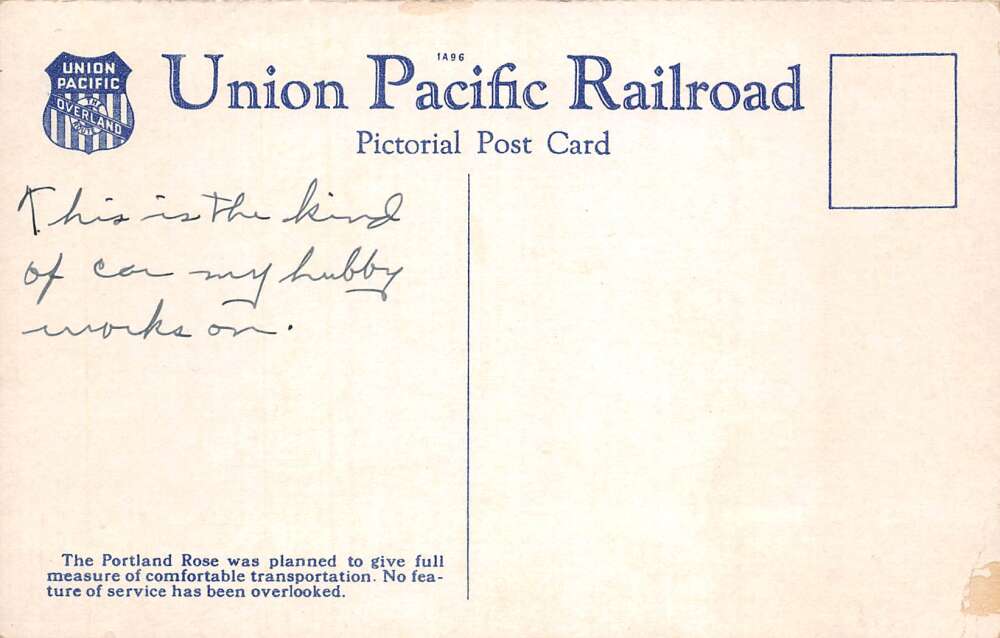 UNION
PACIFIC
THE
OVERLAND
ROUTE
1A96
Union Pacific Railroad
Pictorial Post Card
This is the kind
of car my hubby
works on.
The Portland Rose was planned to give full
measure of comfortable transportation. No fea-
ture of service has been overlooked.